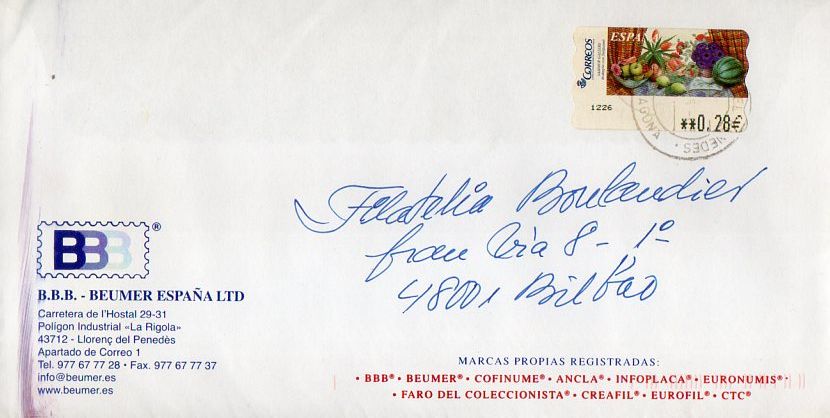 ESPA
CORREOS
1226
**0.28€
AGONA
NEDES
Filatelia Boulandier
Gran Vía 8 - 1º
48001 Bilbao
BBB®
B.B.B. - BEUMER ESPAÑA LTD
Carretera de l'Hostal 29-31
Polígon Industrial «La Rigola»
43712 - Llorenç del Penedès
Apartado de Correo 1
Tel. 977 67 77 28 • Fax. 977 67 77 37
info@beumer.es
www.beumer.es
MARCAS PROPIAS REGISTRADAS:
• BBB® • BEUMER® • COFINUME® • ANCLA® • INFOPLACA® • EURONUMIS®
• FARO DEL COLECCIONISTA® • CREAFIL® • EUROFIL® • CTC®